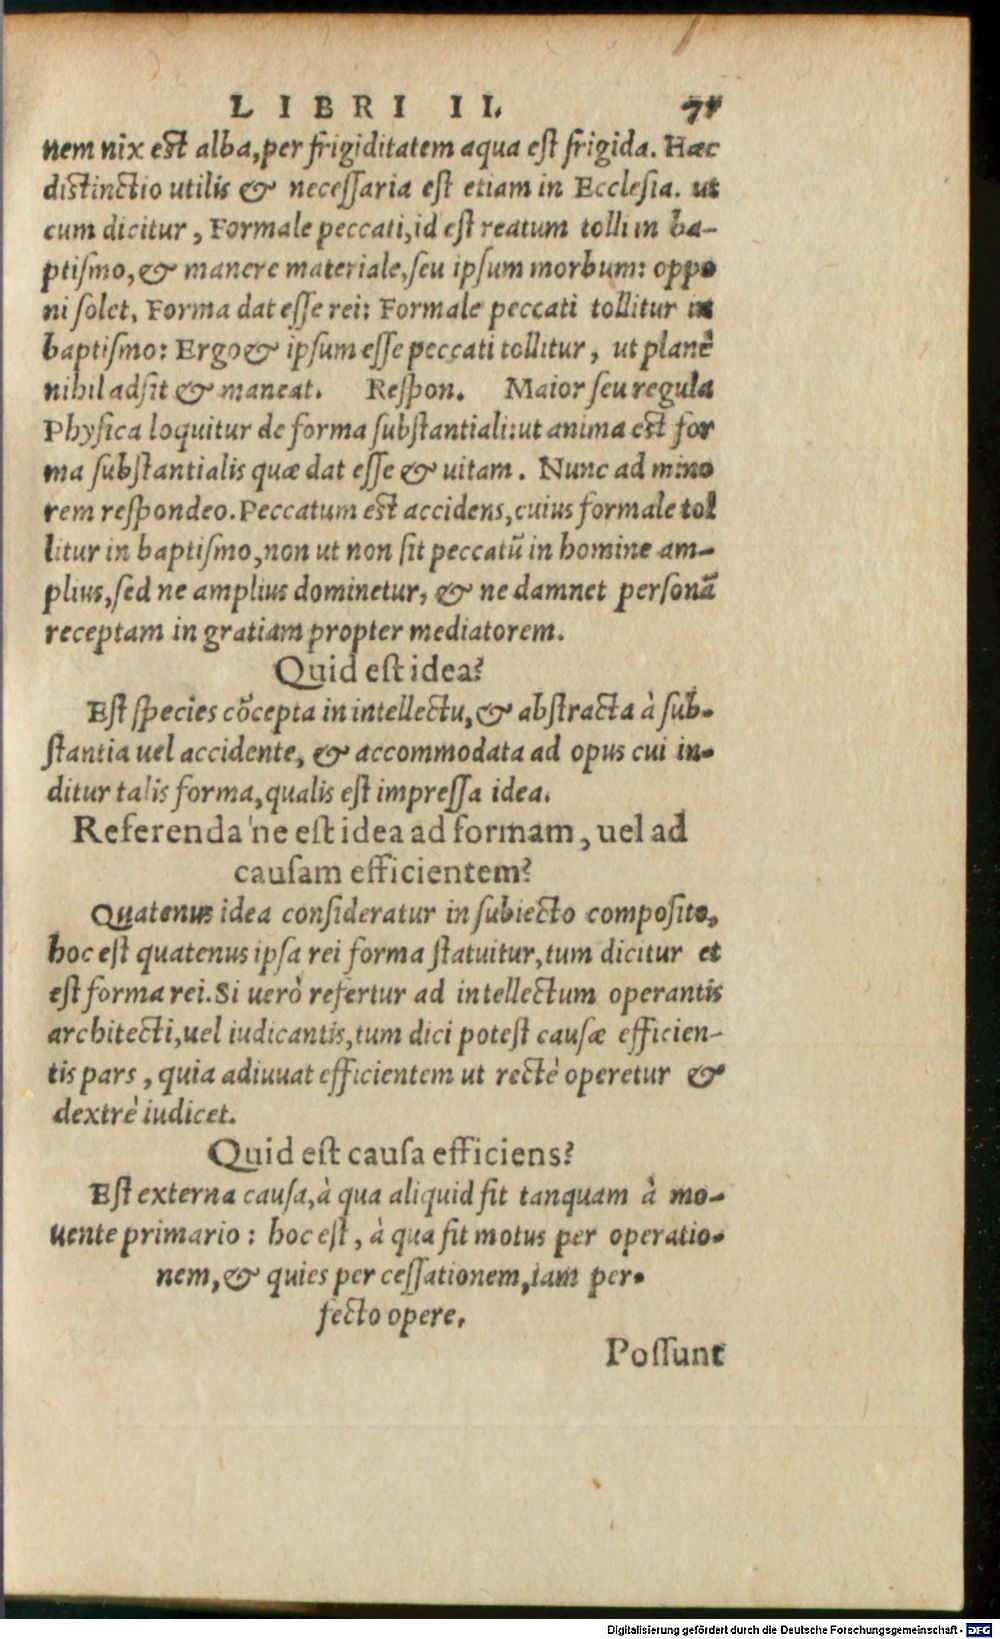 LIBRI II. 71
nem nix est alba, per frigiditatem aqua est frigida. Hæc
distinctio utilis & necessaria est etiam in Ecclesia. ut
cum dicitur, Formale peccati, id est reatum tolli in ba-
ptismo, & manere materiale, seu ipsum morbum: oppo
ni solet, Forma dat esse rei: Formale peccati tollitur in
baptismo: Ergo & ipsum esse peccati tollitur, ut planè
nihil adsit & maneat. Respon. Maior seu regula
Physica loquitur de forma substantiali: ut anima est for
ma substantialis quæ dat esse & uitam. Nunc ad mino
rem respondeo. Peccatum est accidens, cuius formale tol
litur in baptismo, non ut non sit peccatũ in homine am-
plius, sed ne amplius dominetur, & ne damnet personã
receptam in gratiam propter mediatorem.
Quid est idea?
Est species cõcepta in intellectu, & abstracta à sub-
stantia uel accidente, & accommodata ad opus cui in-
ditur talis forma, qualis est impressa idea.
Referenda'ne est idea ad formam, uel ad
causam efficientem?
Quatenus idea consideratur in subiecto composito,
hoc est quatenus ipsa rei forma statuitur, tum dicitur et
est forma rei. Si uerò refertur ad intellectum operantis
architecti, uel iudicantis, tum dici potest causæ efficien-
tis pars, quia adiuuat efficientem ut rectè operetur &
dextrè iudicet.
Quid est causa efficiens?
Est externa causa, à qua aliquid fit tanquam à mo-
uente primario: hoc est, à qua fit motus per operatio-
nem, & quies per cessationem, iam per-
fecto opere.
Possunt
Digitalisierung gefördert durch die Deutsche Forschungsgemeinschaft - DFG